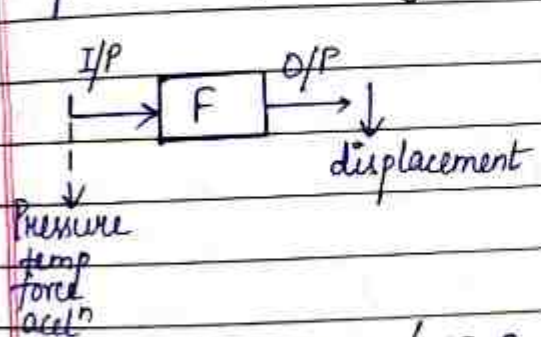 I/P
F
O/P
displacement
Pressure
temp
force
accln